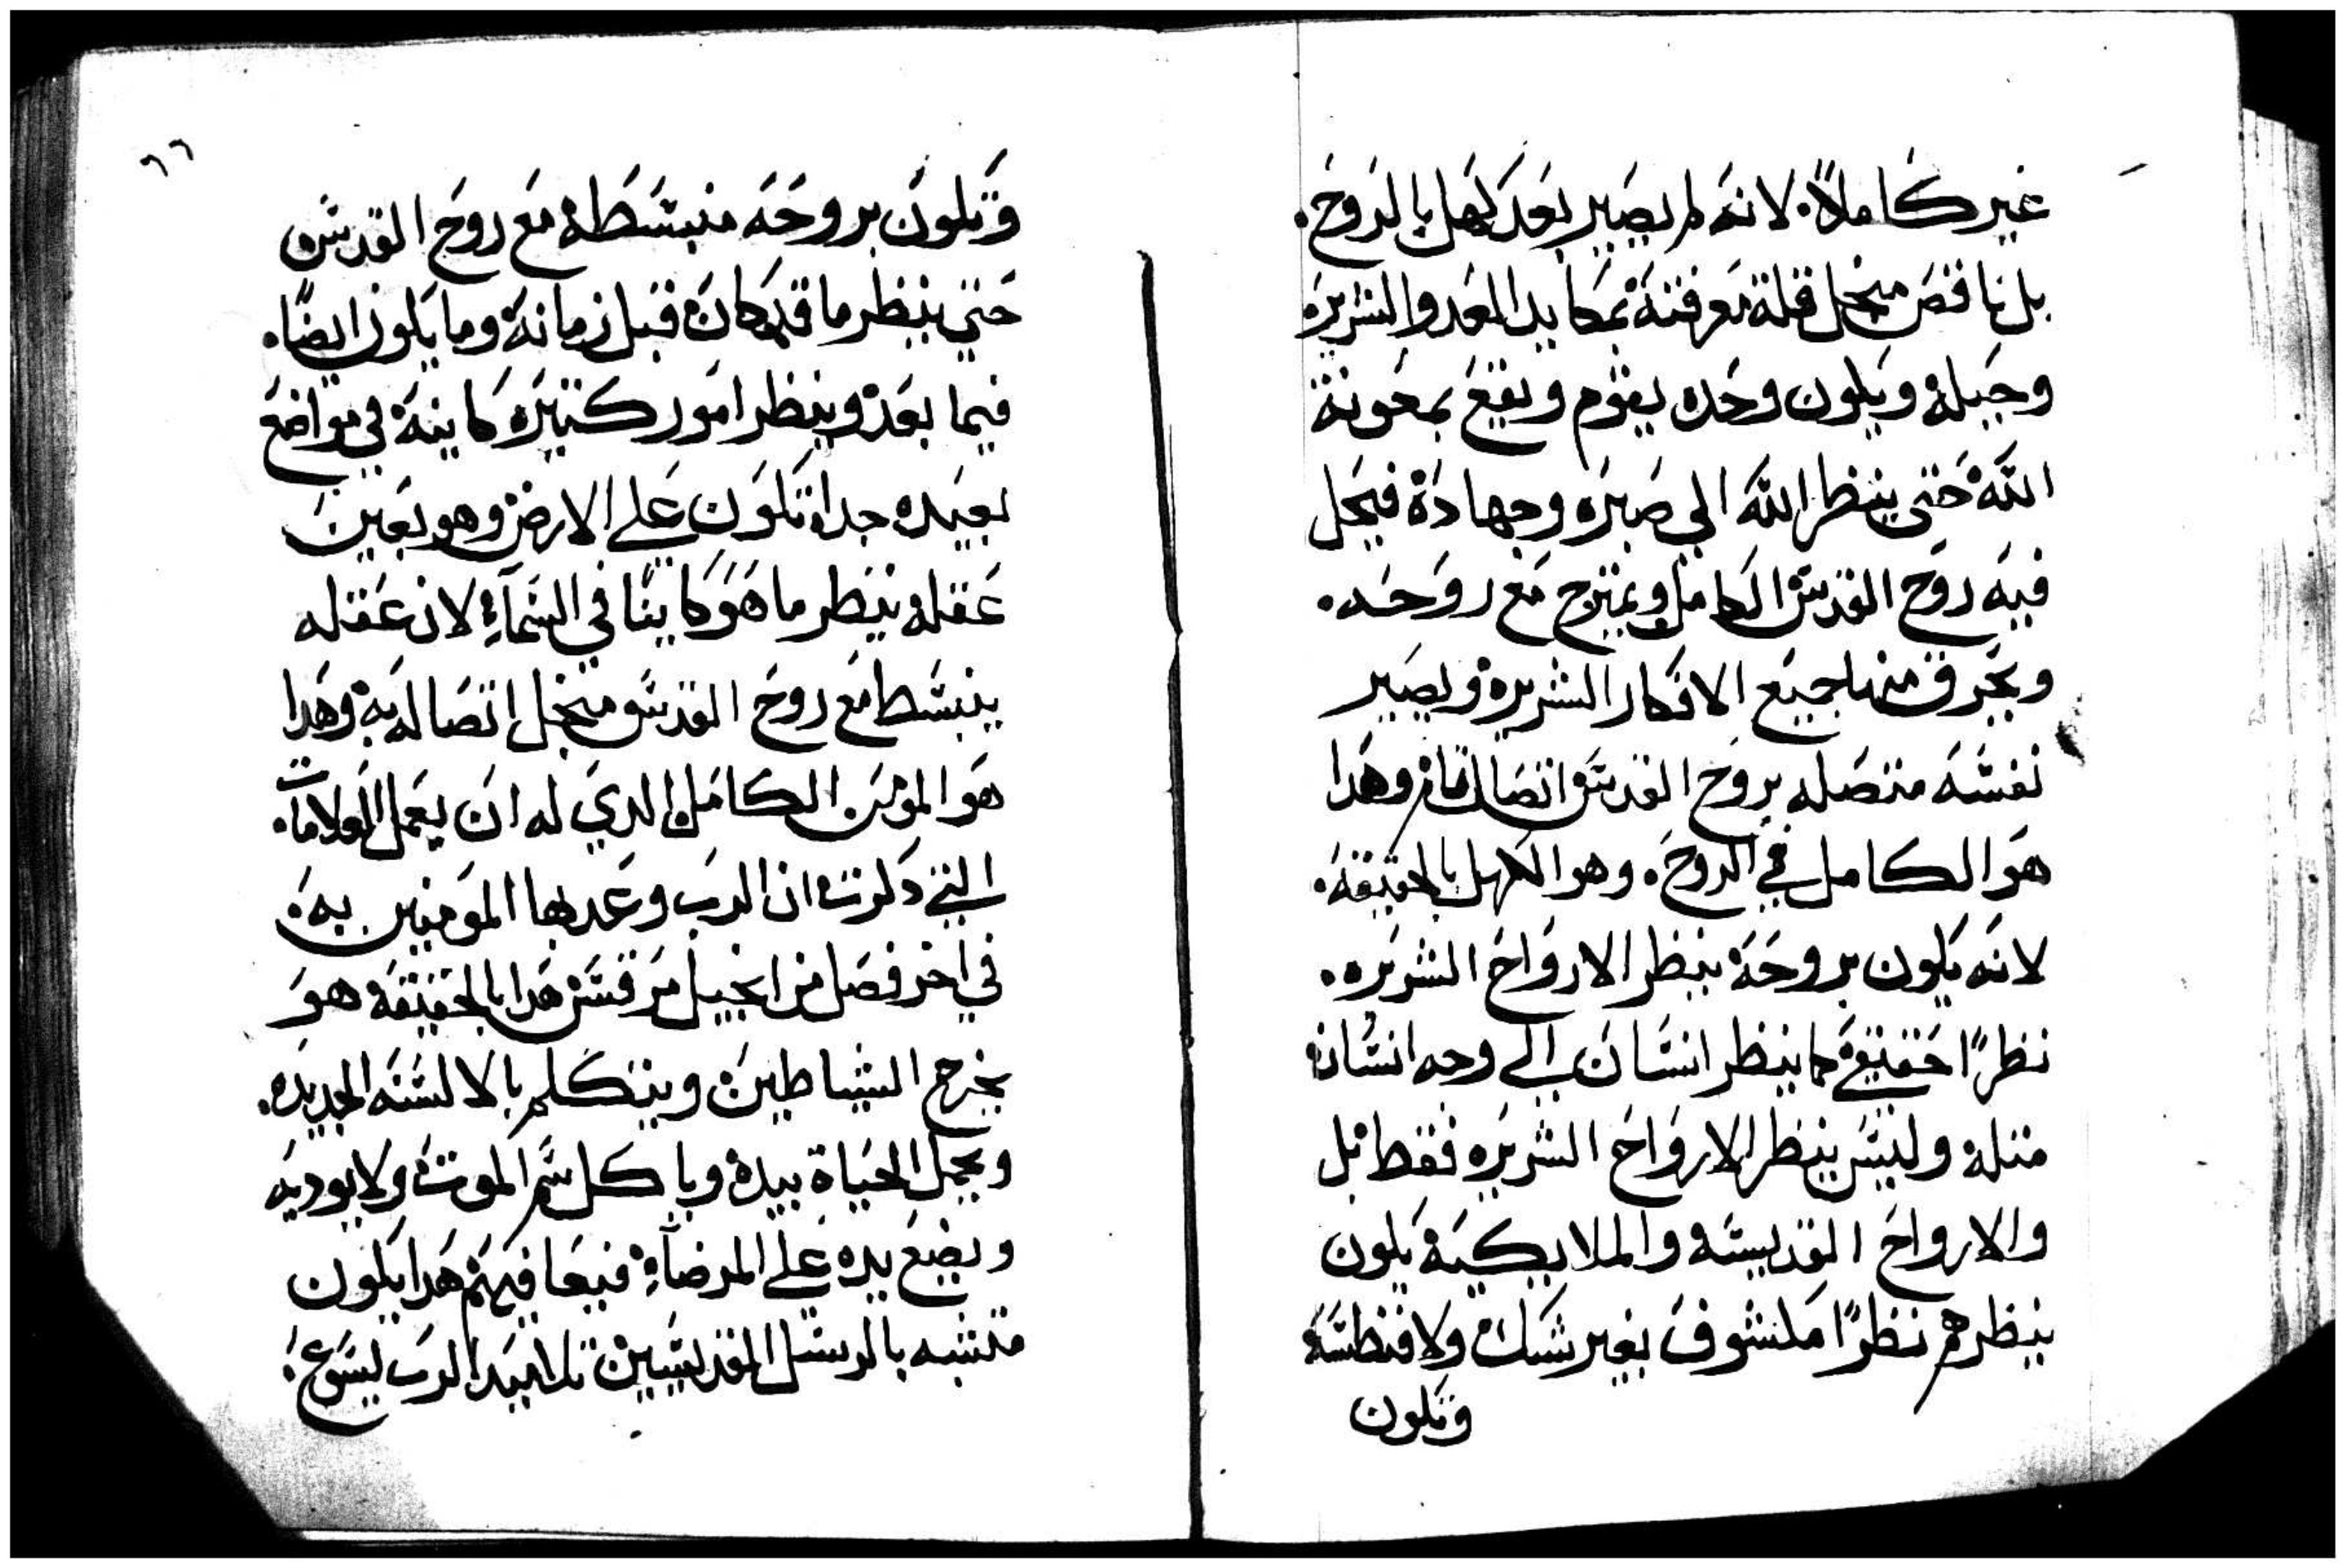 غير كاملاً. لانه لم يصير بعد كهل بالروح.
بل ناقص منجل قلة معرفته بمكايد العدو الشريره
وحيله ويكون وحده يقوم ويقع بمعونة
الله حتى ينظر الله الي صبره وجهاده فيحل
فيه روح القدس الكامل ويمتزج مع روحه.
ويحرق منها جميع الافكار الشريره ويصير
نفسه متصله بروح القدس اتصال تام وهدا
هو الكامل في الروح. وهو الكهل بالحقيقه.
لانه يكون بروحه ينظر الارواح الشريره.
نظرًا حقيقي كما ينظر انسان الي وجه انسان
متله وليس ينظر الارواح الشريره فقط بل
والارواح القديسه والملايكيه يكون
ينظرهم نظرًا مكشوف بغير شك ولا فنطسه
وتكون
٦٦
وتكون بروحه منبسطه مع روح القدس
حتي ينظر ما قد كان قبل زمانه وما يكون ايضًا.
فيما بعد وينظر امور كتيره كاينه في مواضع
بعيده جدا تكون علي الارض وهو بعين
عقله ينظر ما هو كاينًا في السماء لان عقله
ينبسط مع روح القدس منجل اتصاله به وهدا
هو المومن الكامل الدي له ان يعمل العلامات.
التي دكرت ان الرب وعد بها المومنين به.
في اخر فصل من انجيل مرقس هدا بالحقيقه هو
يخرج الشياطين ويتكلم بالالسنه الجديده.
ويحمل الحياة بيده وياكل سم الموت ولا يوديه
ويضع يده علي المرضاء فيعافيهم هدا يكون
متشبه بالرسل القديسين تلاميد الرب يسوع.